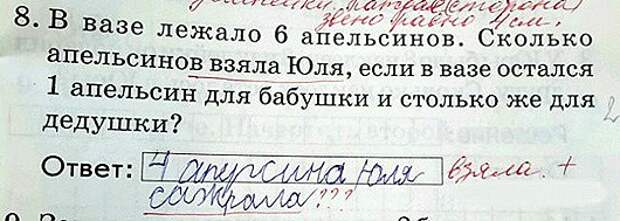 звено равно 1 см.
8. В вазе лежало 6 апельсинов. Сколько
апельсинов взяла Юля, если в вазе остался
1 апельсин для бабушки и столько же для
дедушки?
2
Ответ: 4 апурсина Юля взяла. +
сажрала ???